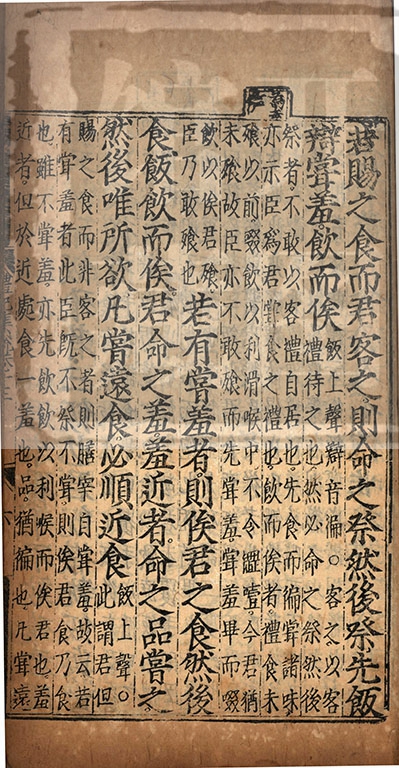 若賜之食而君客之則命之祭然後祭先飯
辯嘗羞飲而俟
飯上聲辯音徧○客之以客
禮待之也然必命之祭然後
祭者不敢以客禮自居也先食而徧嘗諸味
亦示臣爲君嘗食之禮也飲而俟者禮食未
飱以前啜飲以利滑喉中不令澀噎今君猶
未飱故臣亦不敢飱而先嘗羞嘗羞畢而啜
飲以俟君飱
臣乃敢飱也
若有嘗羞者則俟君之食然後
食飯飲而俟君命之羞羞近者命之品嘗之
然後唯所欲凡嘗遠食必順近食
飯上聲○
此謂君但
賜之食而非客之者則膳宰自嘗羞故云若
有嘗羞者此臣旣不祭不嘗則俟君食乃食
也雖不嘗羞亦先飲飲以利喉而俟君也羞
近者但於近處食一羞也品猶徧也凡嘗遠